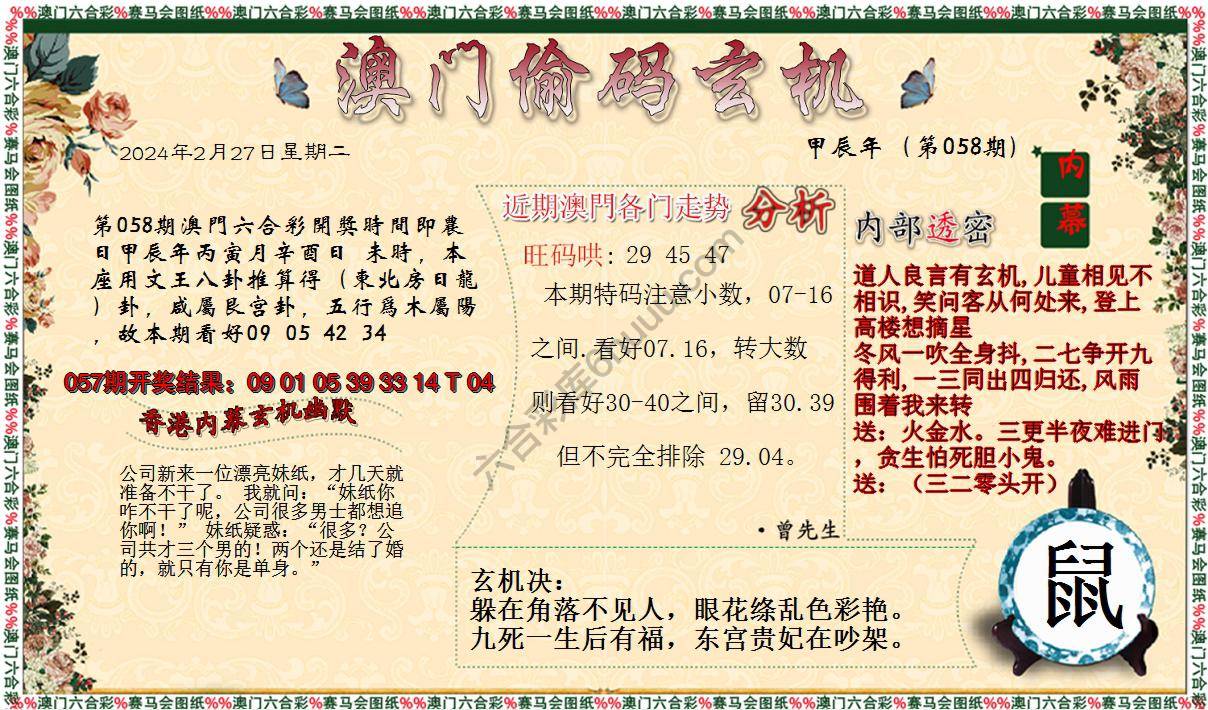 %%澳门六合彩%赛马会图纸%%澳门六合彩%赛马会图纸%%澳门六合彩%赛马会图纸%%澳门六合彩%赛马会图纸%%澳门六合彩%赛马会图纸%%澳门六合彩%赛马会图纸%%
澳门偷码玄机
2024年2月27日星期二
甲辰年（第058期）
内幕
第058期澳門六合彩開獎時間即農
日甲辰年丙寅月辛酉日 未時，本
座用文王八卦推算得（東北房日龍
）卦，咸屬艮宫卦，五行爲木屬陽
，故本期看好09 05 42 34
057期开奖结果：09 01 05 39 33 14 T 04
香港内幕玄机幽默
公司新来一位漂亮妹纸，才几天就
准备不干了。 我就问：“妹纸你
咋不干了呢，公司很多男士都想追
你啊！” 妹纸疑惑：“很多？公
司共才三个男的！两个还是结了婚
的，就只有你是单身。”
近期澳門各门走势 分析
旺码哄: 29 45 47
本期特码注意小数，07-16
之间.看好07.16，转大数
则看好30-40之间，留30.39
但不完全排除 29.04。
·曾先生
内部透密
道人良言有玄机,儿童相见不
相识,笑问客从何处来,登上
高楼想摘星
冬风一吹全身抖,二七争开九
得利,一三同出四归还,风雨
围着我来转
送：火金水。三更半夜难进门
，贪生怕死胆小鬼。
送：（三二零头开）
玄机决：
躲在角落不见人，眼花绦乱色彩艳。
九死一生后有福，东宫贵妃在吵架。
鼠
%%澳门六合彩%赛马会图纸%%澳门六合彩%赛马会图纸%%澳门六合彩%赛马会图纸%%澳门六合彩%赛马会图纸%%澳门六合彩%赛马会图纸%%澳门六合彩%赛马会图纸%%